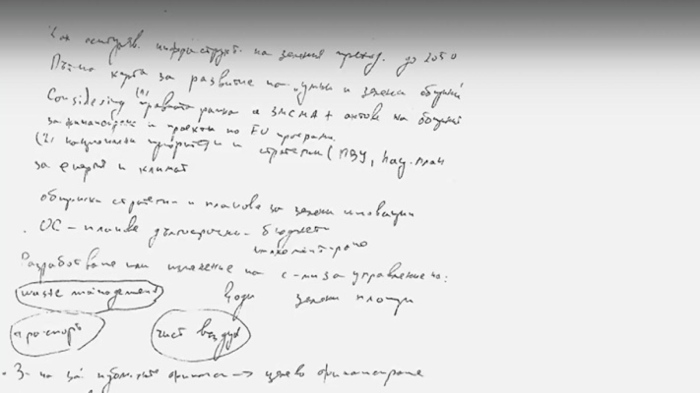 инфраструкт. на зеления преход. до 2050
Пътна карта за развитие на умни и зелени общини
Considering (1) правната рамка а ЗМСМА + актове на общини
за финансиране и проекти по EU програми
(2) национални приоритети и стратегии (ПВУ, нац. план
за енерг и климат
общински стратегии и планове за зелени иновации
ОС – планове дългосрочни – бюджети
Разработване или на с-ми за управление на:
waste management води зелени площи
транспорт чист въздух
З- на за → целево финансиране